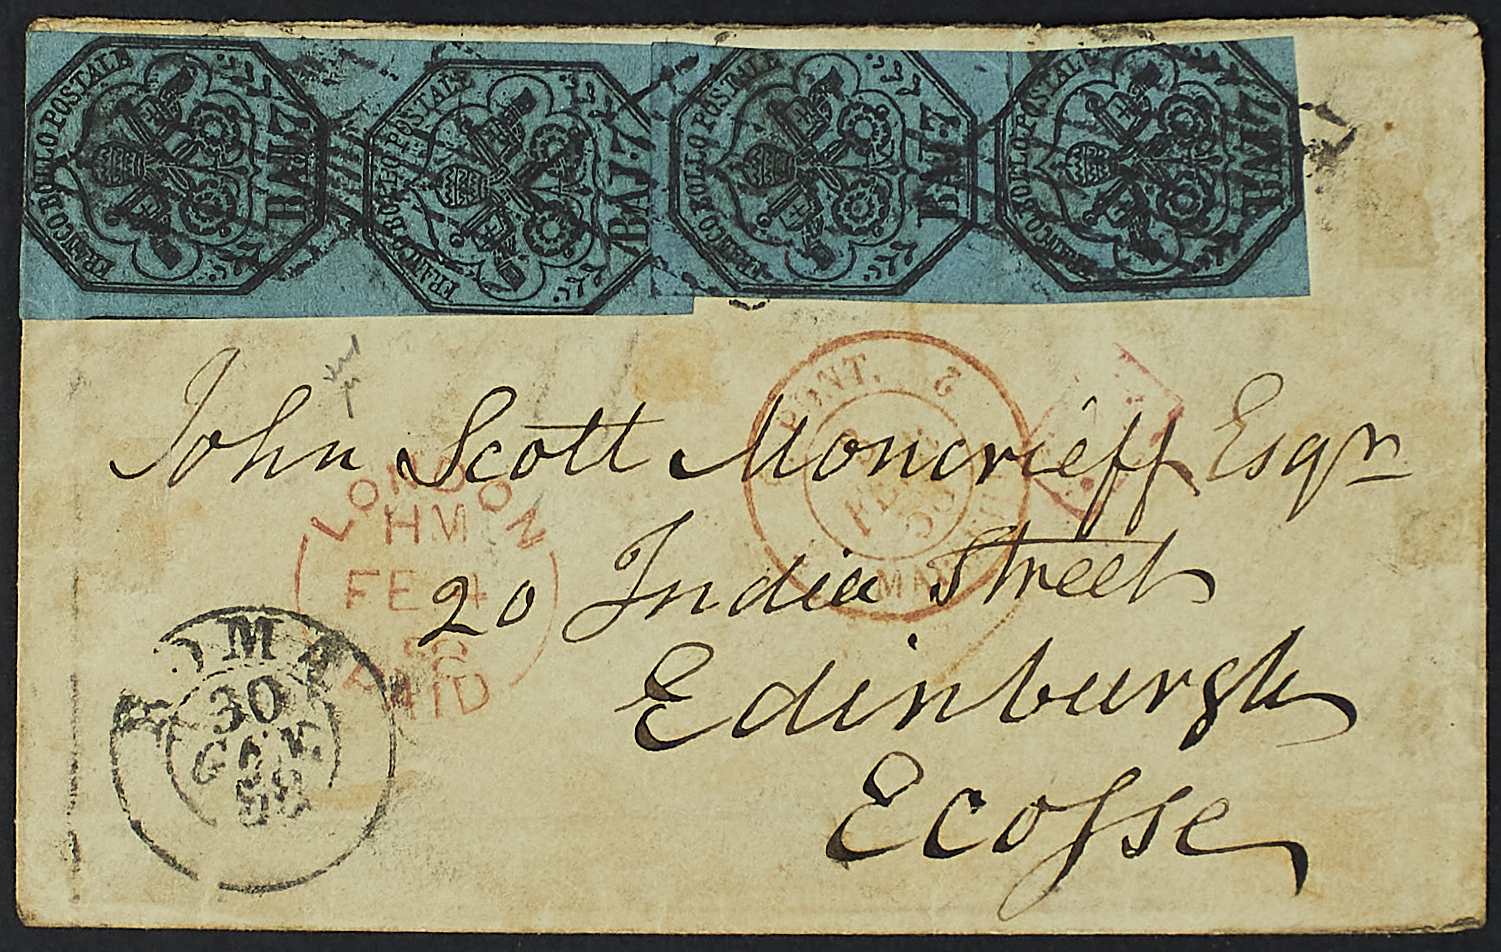 FRANCO BOLLO POSTALE BAJ. 7
FRANCO BOLLO POSTALE BAJ. 7
FRANCO BOLLO POSTALE BAJ. 7
FRANCO BOLLO POSTALE BAJ. 7
PONT. 3
John Scott Moncrieff Esqr
LONDON
HM
FE 4
PAID
20 India Street
Edinburgh
Ecosse
ROMA
30
GEN.
58